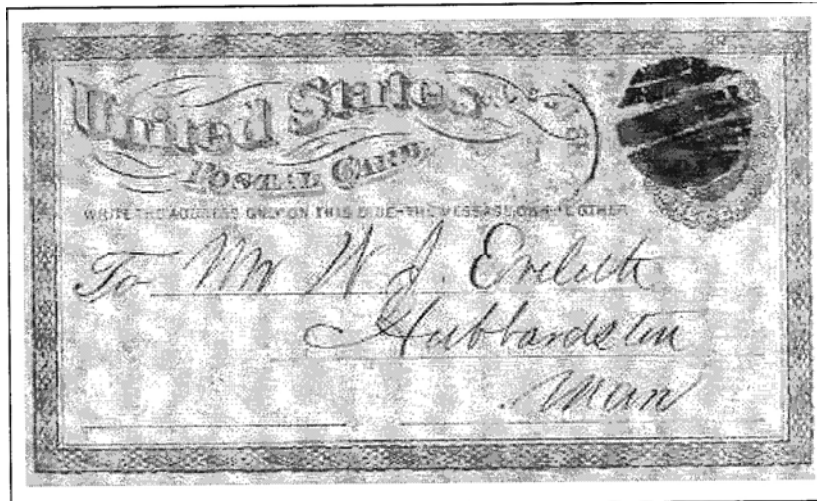 United States
POSTAL CARD.
WRITE THE ADDRESS ONLY ON THIS SIDE-THE MESSAGE ON THE OTHER
To Mr W. J. Eveleth
Hubbardston
Mass